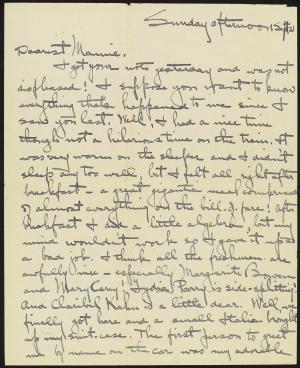 Sunday afternoon
Dearest Mamie,
I got your note yesterday and was not
displeased! I suppose you want to know
everything thats happened to me since I
saw you last. Well, I had a nice time
though not a hilarious time on the train. It
was very warm on the sleeper and I didn't
sleep any too well, but I felt all right after
breakfast - a great gigantic meal comprised
of almost everything on the bill of fare! After
breakfast I did a little algebra, but my
mind wouldn't work so I gave it up as
a bad job. I think all the freshmen are
awfully nice - especially Marguerite
and Mary Cary! Lydia Parry is side-splitting!
And Claribel Kahn is a little dear. Well, we
finally got here and a small Italian brought
up my suit-case. The first person to greet
me by name on the car was my adorable